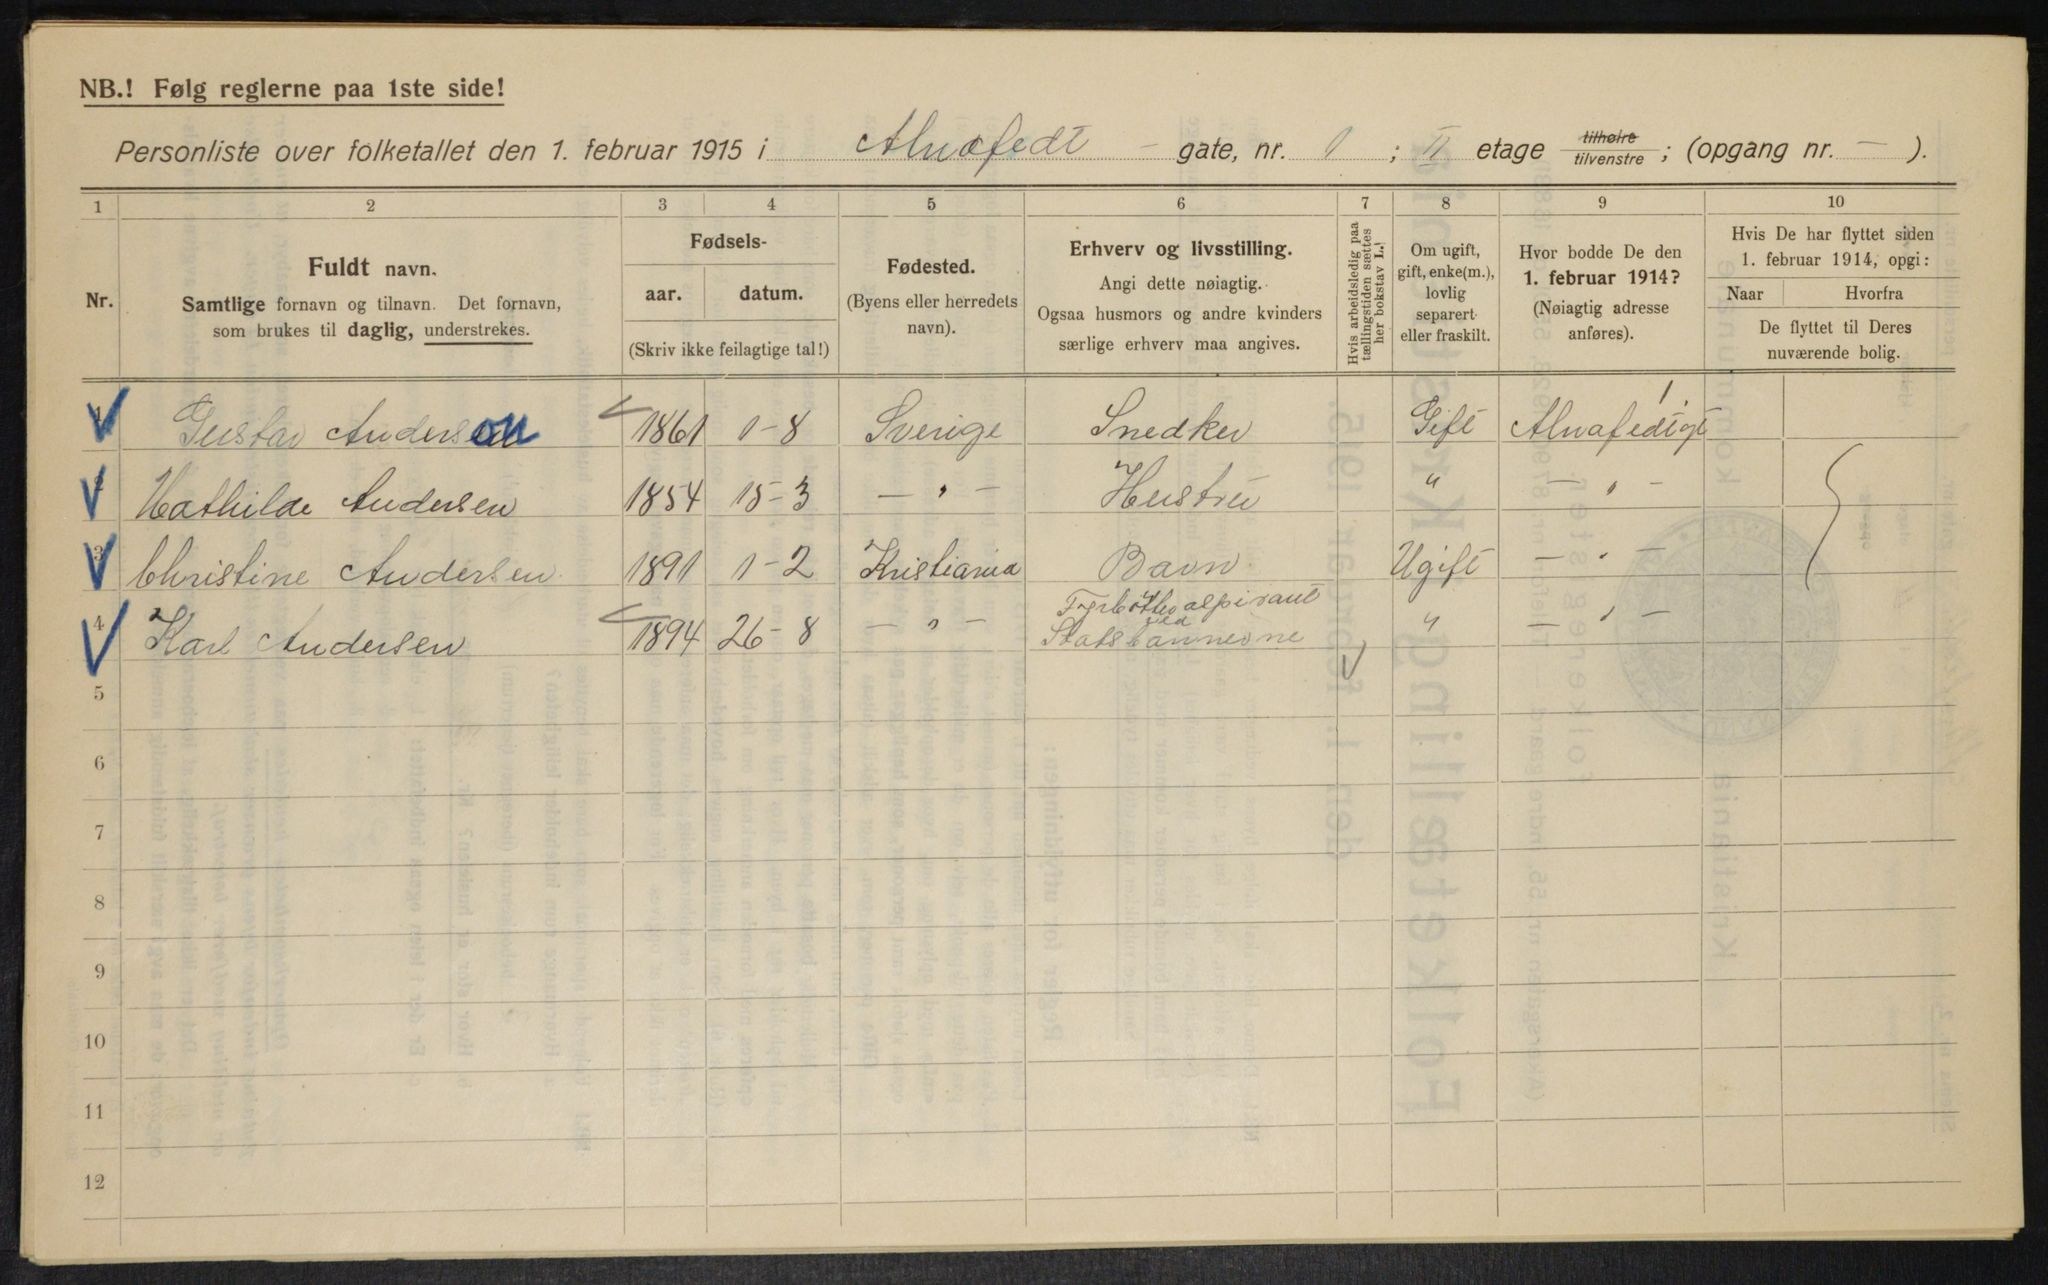 NB.! Følg reglerne paa 1ste side!
Personliste over folketallet den 1. februar 1915 i Alnafedt - gate, nr. 1 ; II etage tilhøire tilvenstre ; (opgang nr. - ).
1 2 3 4 5 6 7 8 9 10
Nr.
Fuldt navn.
Samtlige fornavn og tilnavn. Det fornavn,
som brukes til daglig, understrekes.
Fødsels-
aar. datum.
(Skriv ikke feilagtige tal!)
Fødested.
(Byens eller herredets
navn).
Erhverv og livsstilling.
Angi dette nøiagtig.
Ogsaa husmors og andre kvinders
særlige erhverv maa angives.
Hvis arbeidsledig paa
tællingstiden sættes
her bokstav L.!
Om ugift,
gift, enke(m.),
lovlig
separert
eller fraskilt.
Hvor bodde De den
1. februar 1914?
(Nøiagtig adresse
anføres).
Hvis De har flyttet siden
1. februar 1914, opgi:
Naar Hvorfra
De flyttet til Deres
nuværende bolig.
1 Gustav Anderson 1861 1-8 Sverige Snedker Gift Alnafedtgt 1
2 Mathilde Andersen 1854 15-3 — " — Hustru " — " —
3 Christine Andersen 1891 1-2 Kristiania Barn Ugift — " —
4 Karl Andersen 1894 26-8 — " — Fyrbøtteraspirant ved Statsbannerne " — " —
5
6
7
8
9
10
11
12